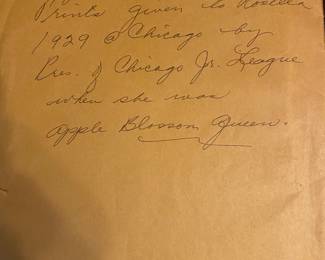 Prints given to Rosella
1929 @ Chicago by
Pres. of Chicago Jr. League
when she was
apple Blossom Queen.